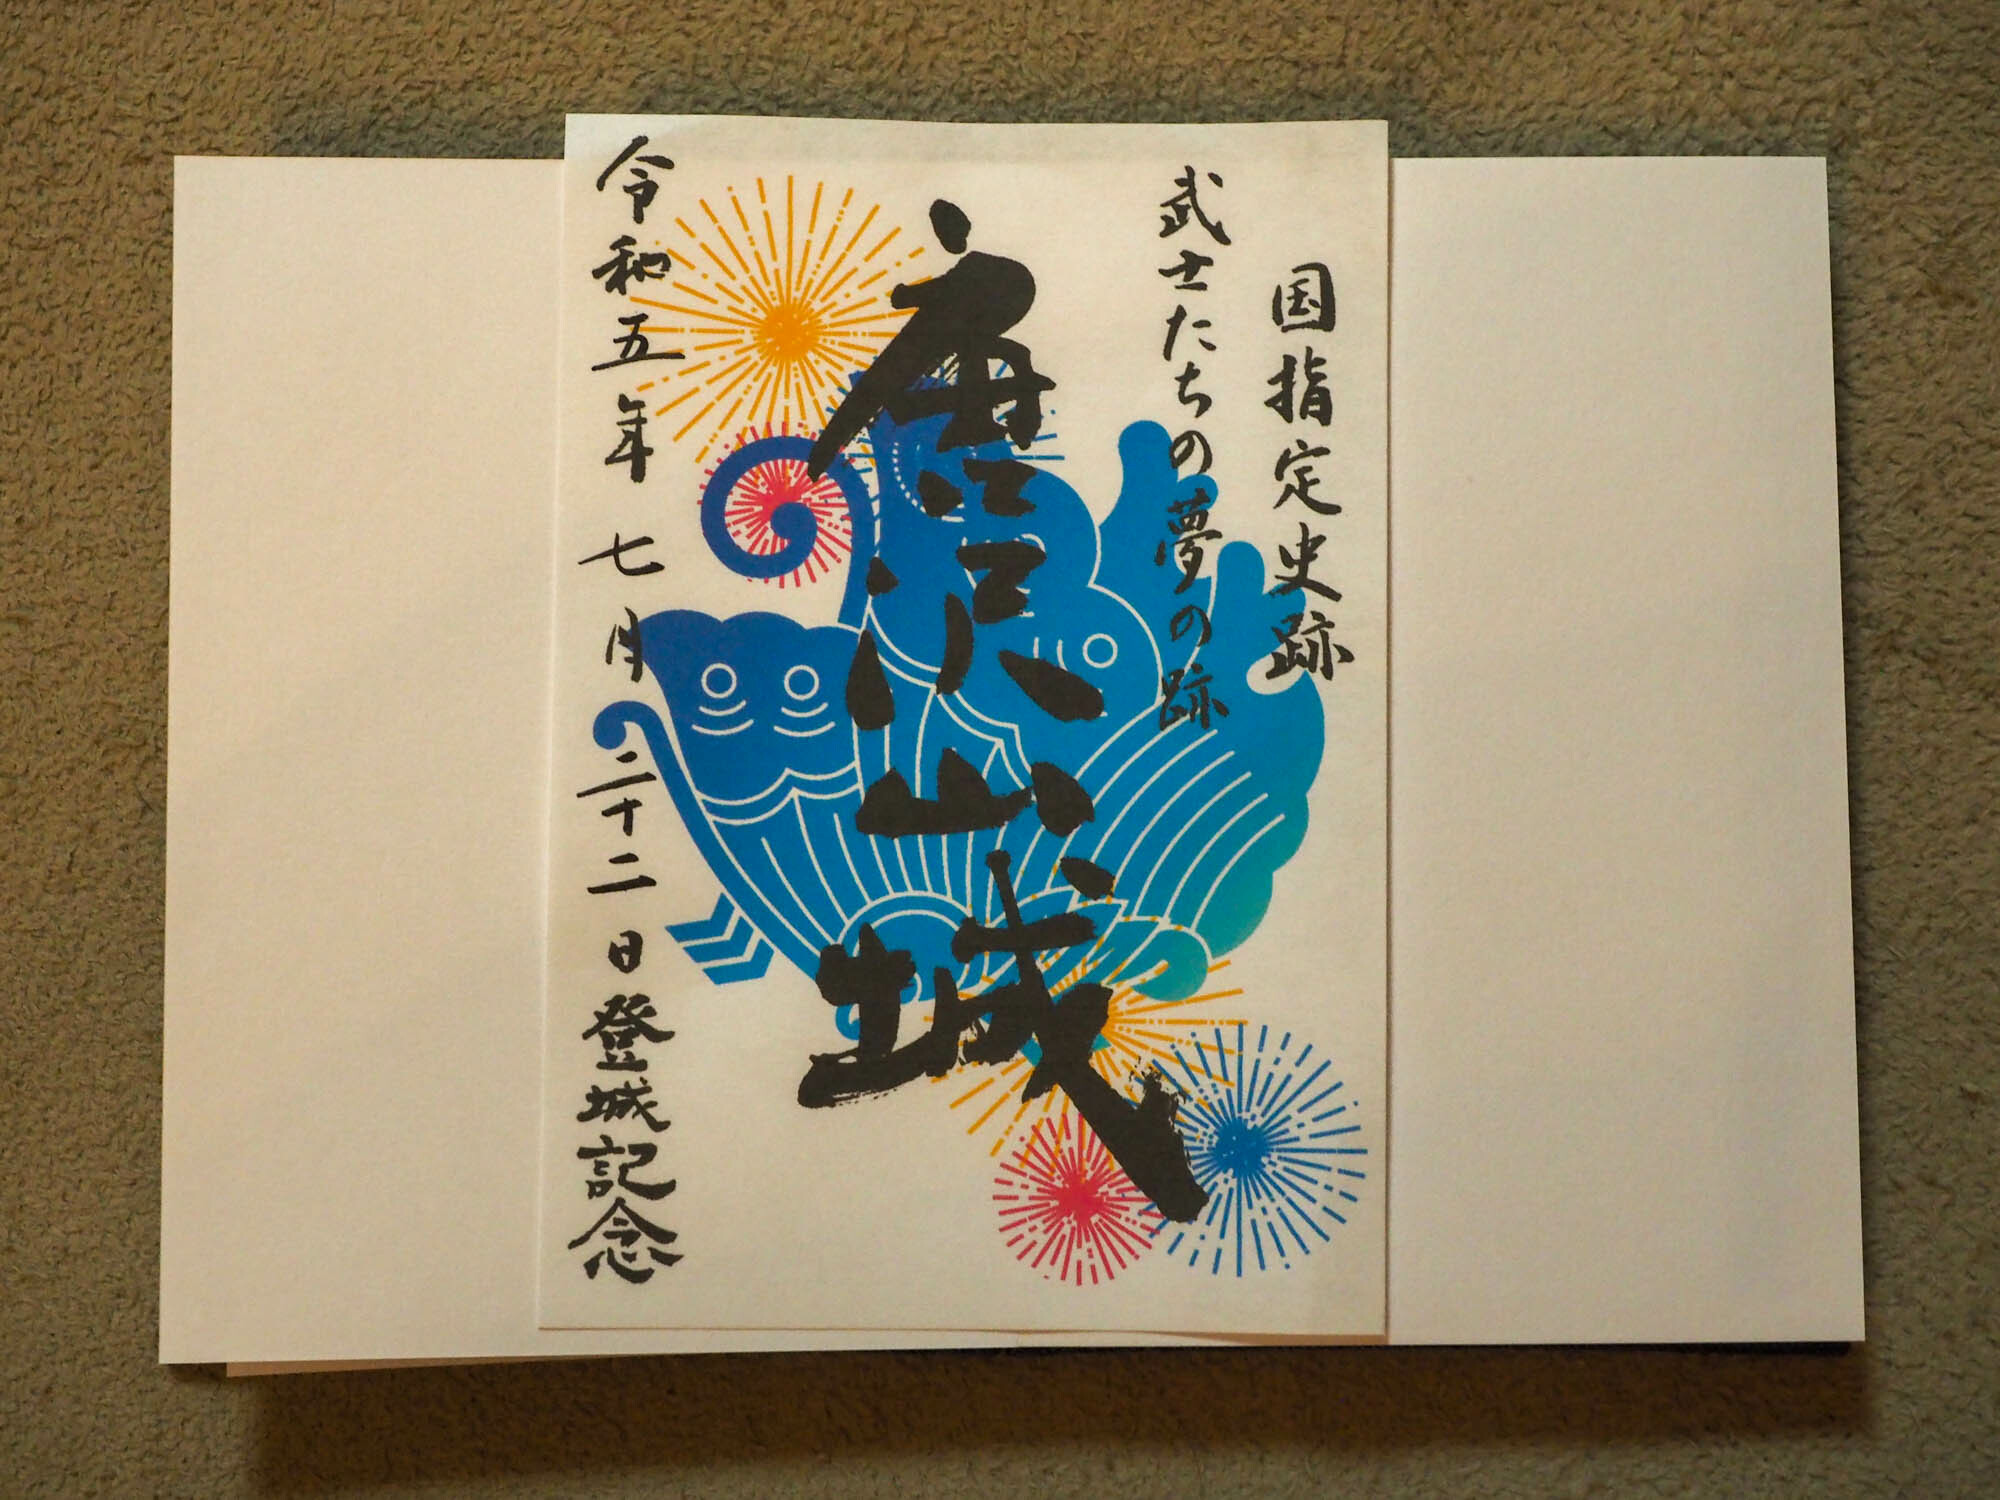 国指定史跡
武士たちの夢の跡
唐沢山城
令和五年 七月 二十二日 登城記念